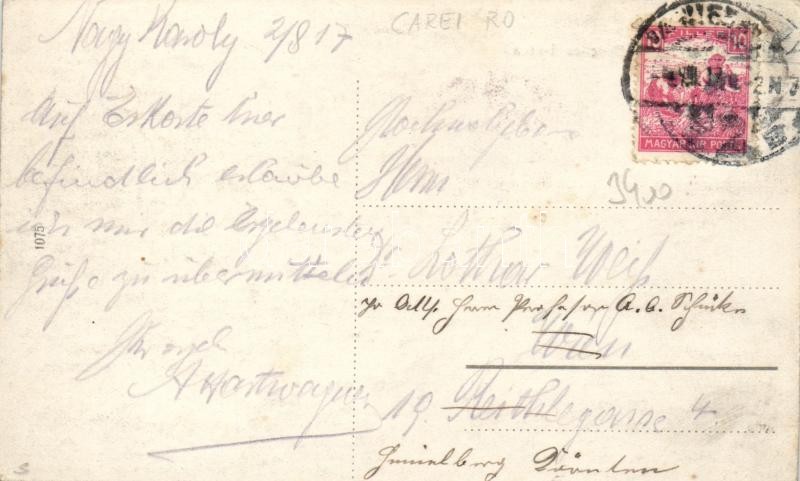 Nagy Karoly 2/8 17
Auf Eskorte hier
befindlich erlaube
ich mir die Ergebensten
Grüße zu übermitteln
Ihr
A Hartwagner
1075
S
CAREI RO
Hochwohlgeboren
Herrn
3400
Dr. Lothar Weiß
Herrn Professor A. G.
Wien
19. Reithlegasse 4.
Himmelberg Kärnten
FILLÉR
10
MAGYAR KIR POSTA